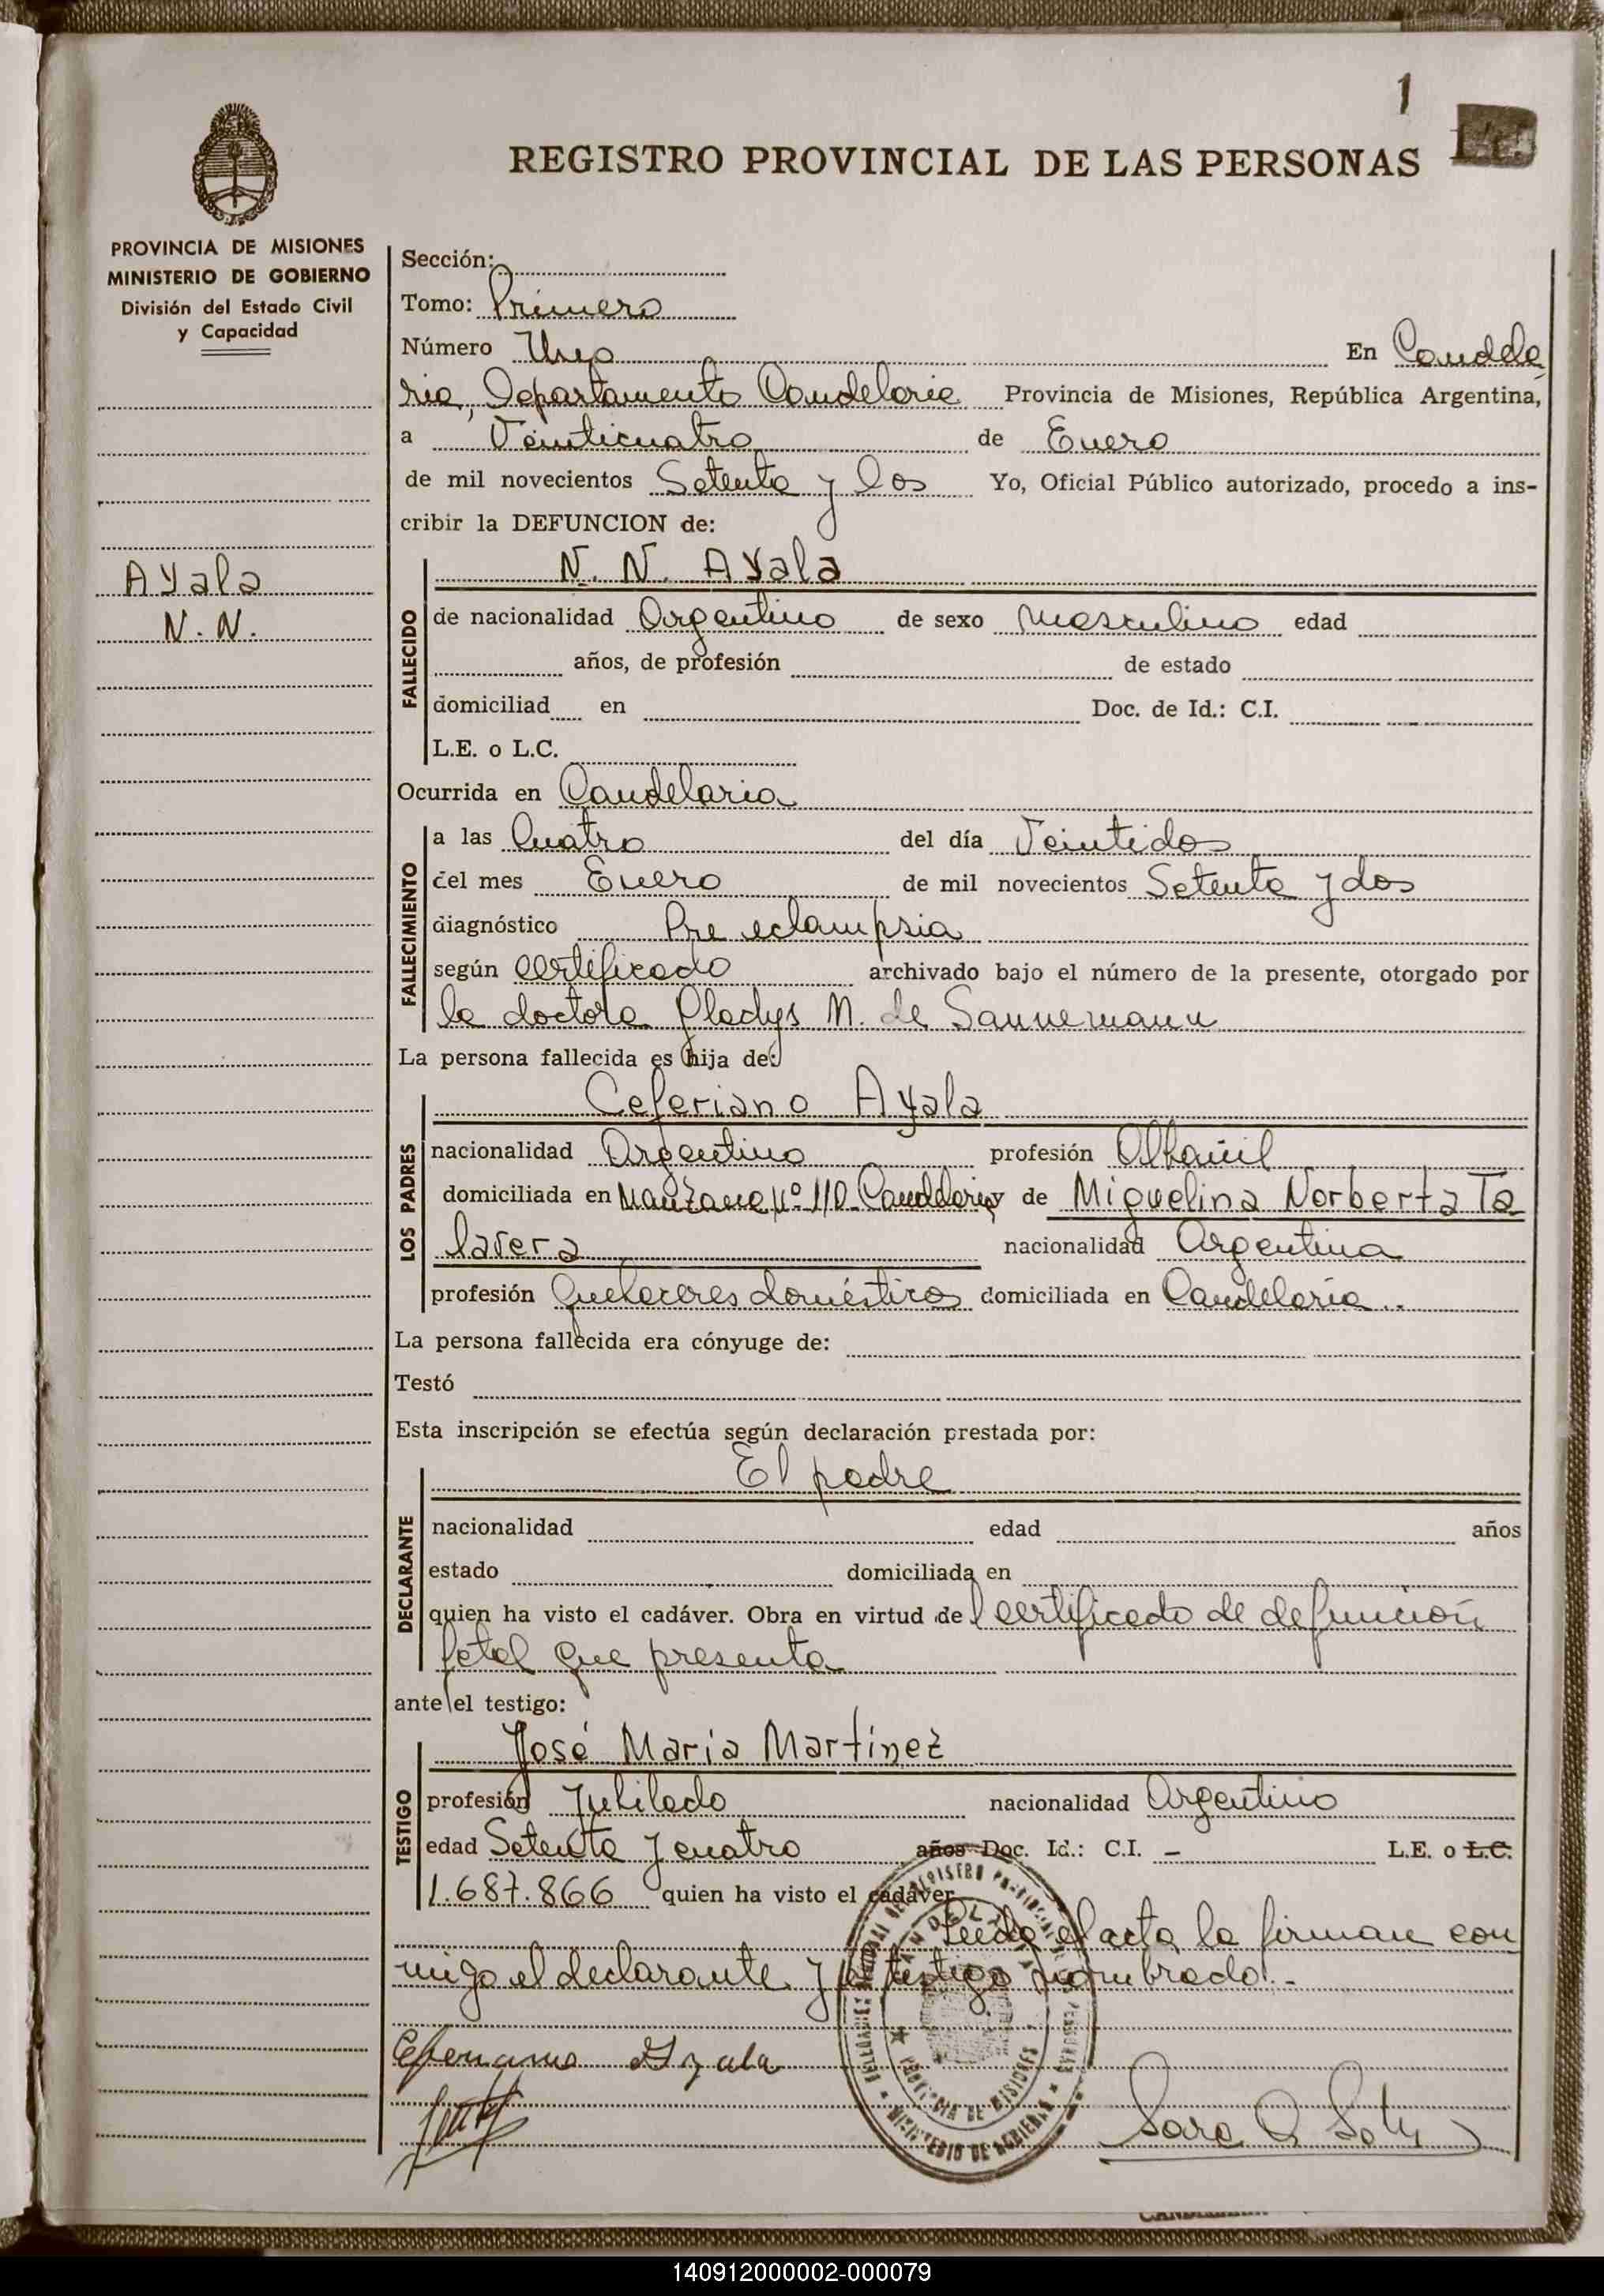 1
REGISTRO PROVINCIAL DE LAS PERSONAS
PROVINCIA DE MISIONES
MINISTERIO DE GOBIERNO
División del Estado Civil
y Capacidad
Ayala
N. N.
Sección:
Tomo: Primero
Número Uno En Candela
ria, Departamento Candelaria Provincia de Misiones, República Argentina,
a Veinticuatro de Enero
de mil novecientos Setenta y dos Yo, Oficial Público autorizado, procedo a ins-
cribir la DEFUNCION de:
N. N. Ayala
FALLECIDO
de nacionalidad Argentino de sexo masculino edad
años, de profesión de estado
domiciliad en Doc. de Id.: C.I.
L.E. o L.C.
Ocurrida en Candelaria
FALLECIMIENTO
a las Cuatro del día Veintidos
del mes Enero de mil novecientos Setenta y dos
diagnóstico Pre eclampsia
según certificado archivado bajo el número de la presente, otorgado por
la doctora Gladys M. de Sannemann
La persona fallecida es hija de:
Ceferiano Ayala
LOS PADRES
nacionalidad Argentino profesión Albañil
domiciliada en Manzana Nº 110 Candelaria y de Miguelina Norberta Ta
lavera nacionalidad Argentina
profesión Quehaceres domésticos domiciliada en Candelaria..
La persona fallecida era cónyuge de:
Testó
Esta inscripción se efectúa según declaración prestada por:
El padre
DECLARANTE
nacionalidad edad años
estado domiciliada en
quien ha visto el cadáver. Obra en virtud del certificado de defunción
fetal que presenta
ante el testigo:
José Maria Martinez
TESTIGO
profesión Jubilado nacionalidad Argentino
edad Setenta y cuatro años Doc. Id.: C.I. - L.E. o L.C.
1.687.866 quien ha visto el cadáver
Leida el acta la firman con
migo el declarante y el testigo nombrado.-
Ceferiano Ayala
Sara Soto
PROVINCIA DE MISIONES
MINISTERIO DE GOBIERNO
140912000002-000079